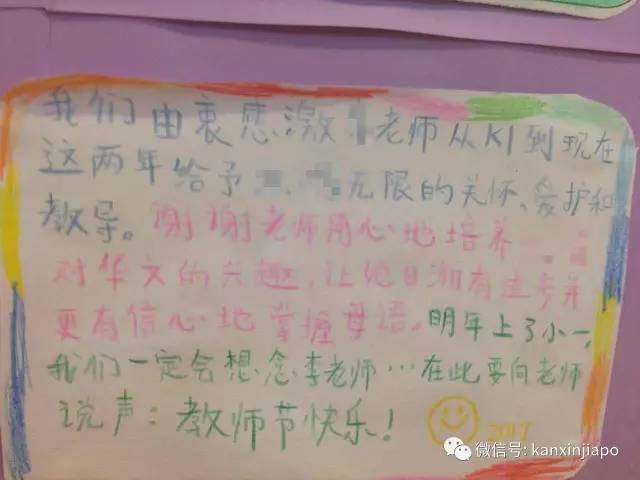 我们由衷感激 老师从K1到现在
这两年给予 、 无限的关怀、爱护和
教导。谢谢老师用心地培养
对华文的兴趣，让他日渐有进步并
更有信心地掌握母语。明年上了小一，
我们一定会想念李老师…在此要向老师
说声：教师节快乐！
2017
微信号: kanxinjiapo